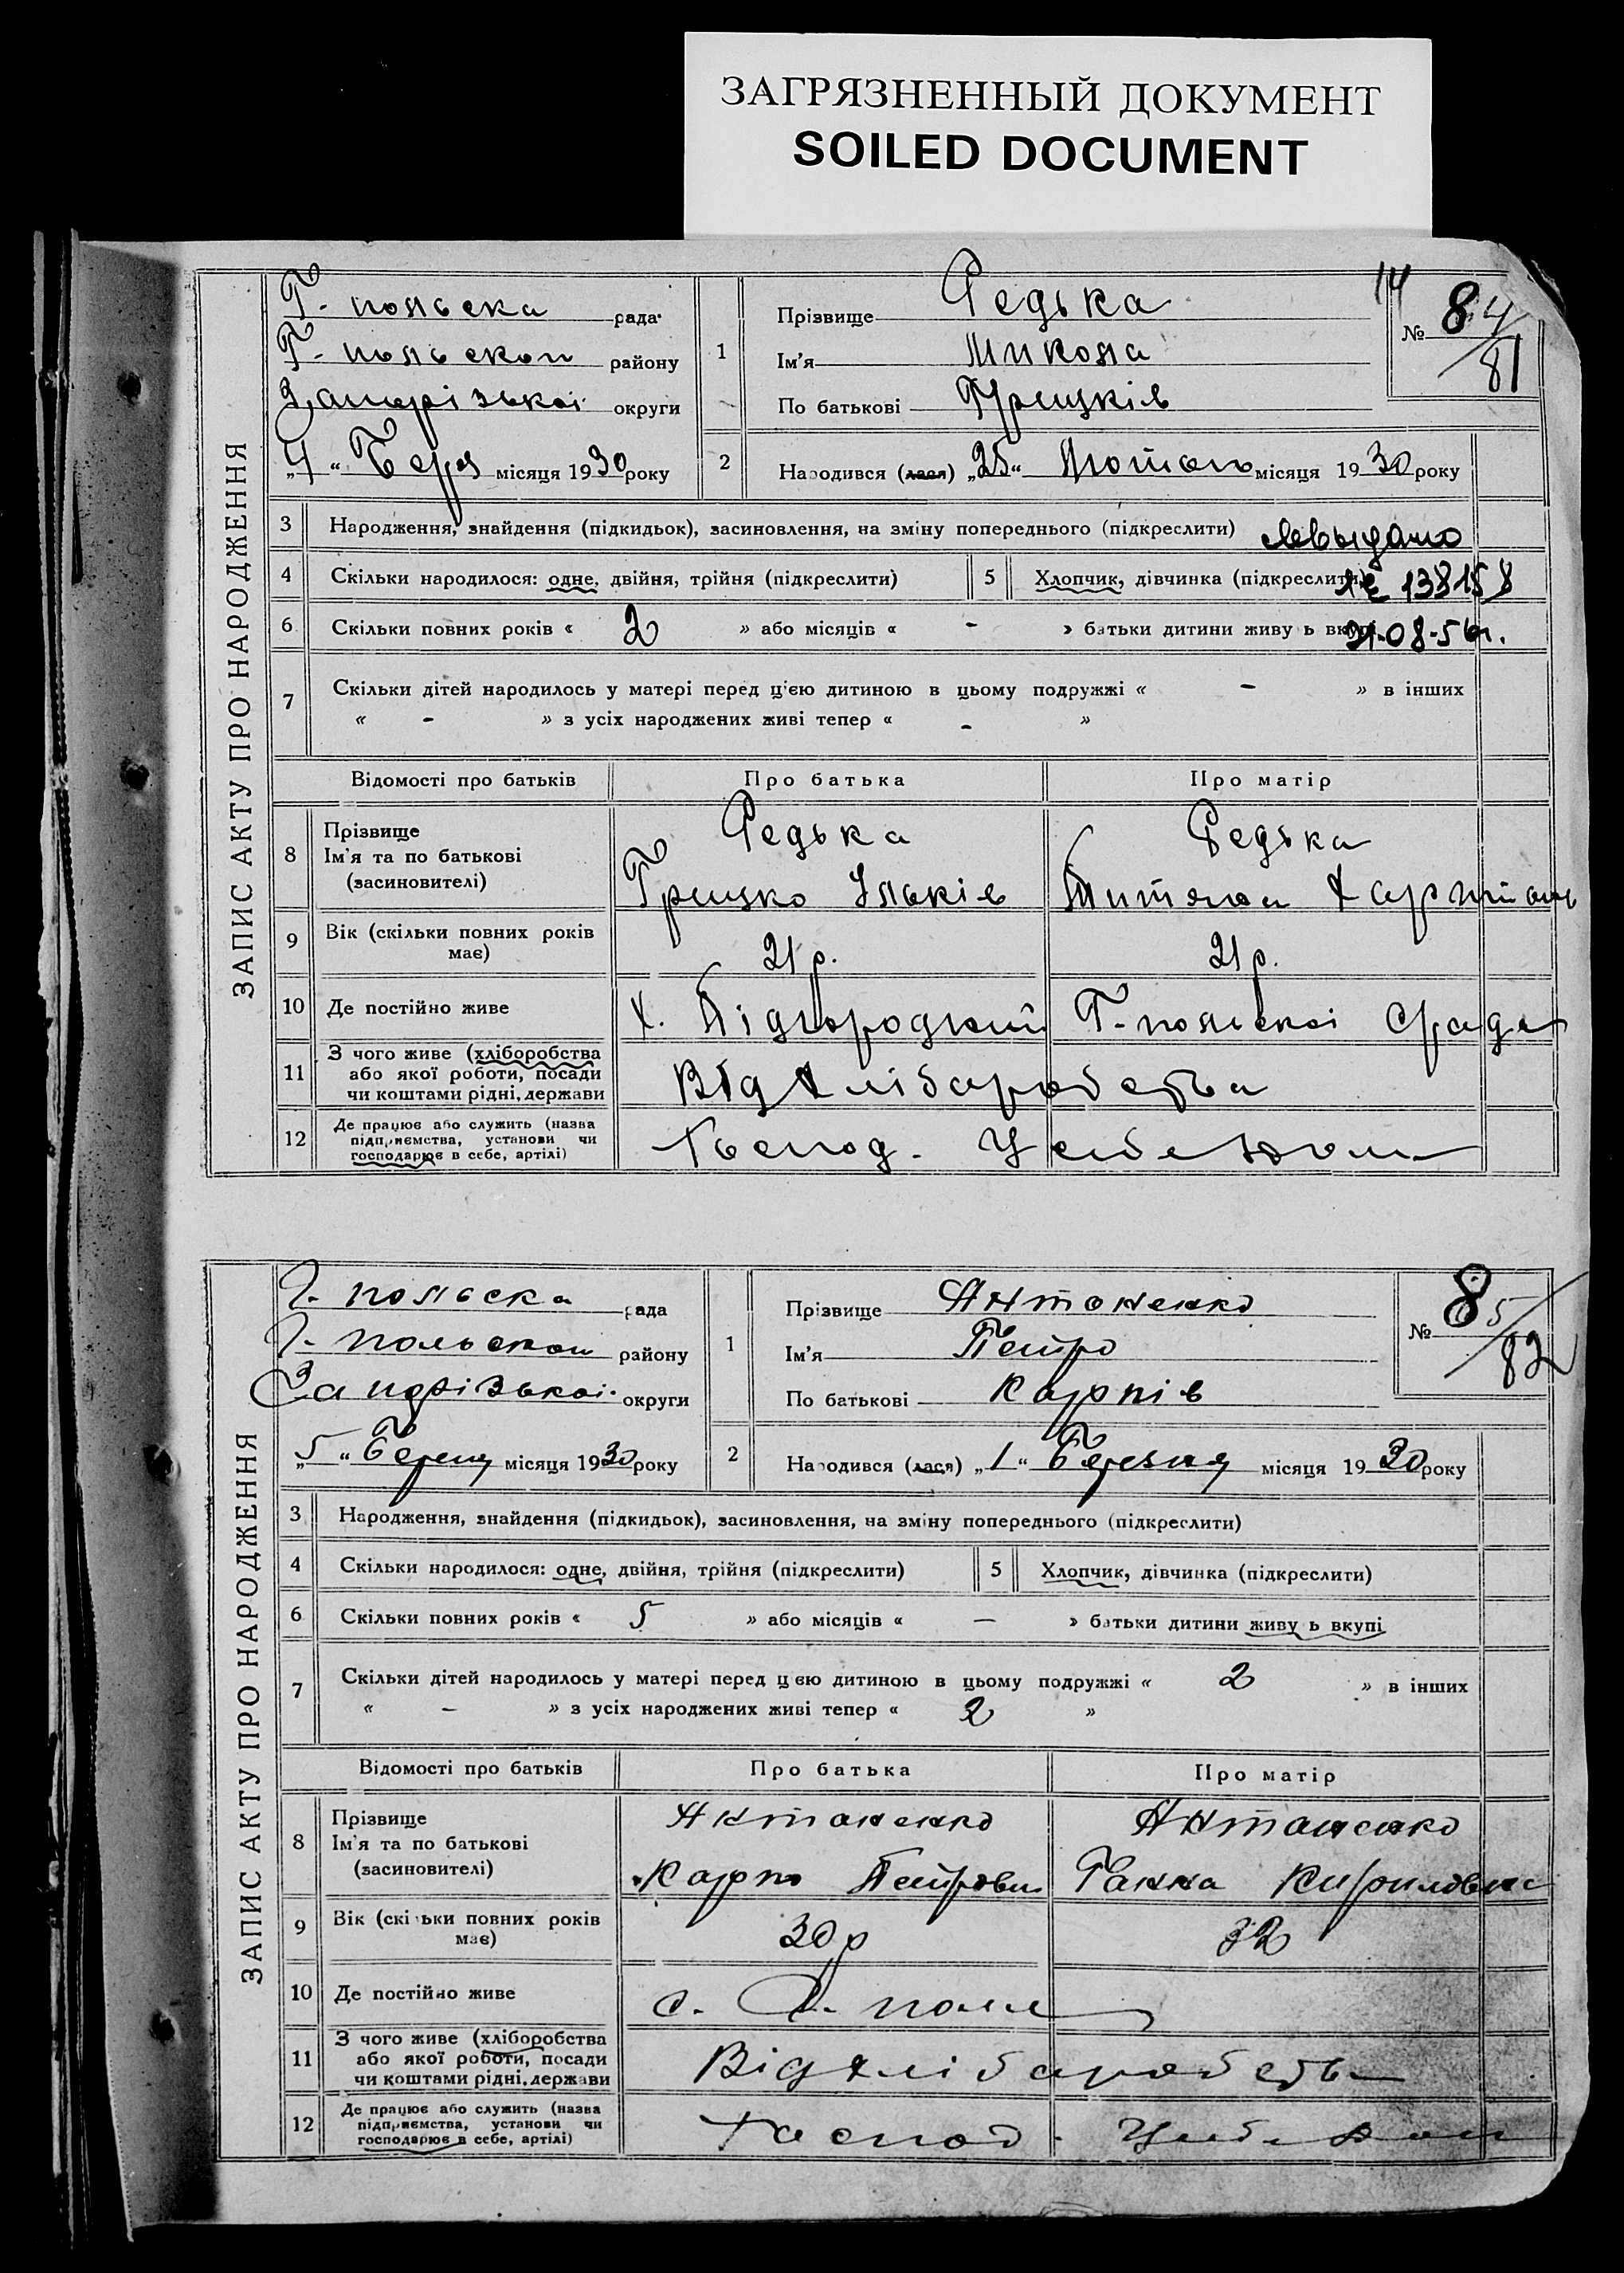 ЗАГРЯЗНЕННЫЙ ДОКУМЕНТ
SOILED DOCUMENT
ЗАПИС АКТУ ПРО НАРОДЖЕННЯ
Г-польска рада
Г-польскои району
Запорізькоі округи
"4" Берез місяця 1930 року
14
№ 84/81
1 Прізвище Редька
Ім'я Микола
По батькові Грицьків
2 Народився (лася) "25" Лютого місяця 1930 року
3 Народження, знайдення (підкидьок), засиновлення, на зміну попереднього (підкреслити)
4 Скільки народилося: одне, двійня, трійня (підкреслити) 5 Хлопчик, дівчинка (підкреслити)
138158
6 Скільки повних років « 2 » або місяців « - » батьки дитини живуть вкупі
08-56г.
7 Скільки дітей народилось у матері перед цією дитиною в цьому подружжі « - » в інших
« - » з усіх народжених живі тепер « - »
Відомості про батьків Про батька Про матір
8 Прізвище Редька Редька
Ім'я та по батькові
(засиновителі) Грицко Ільків
9 Вік (скільки повних років має) 21 р. 21 р.
10 Де постійно живе х. Підгородний Г-польскоі Сради
11 З чого живе (хліборобства або якої роботи, посади чи коштами рідні, держави Від хліборобства
12 Де працює або служить (назва підприємства, установи чи господарює в себе, артілі) Господ. У себе дома
ЗАПИС АКТУ ПРО НАРОДЖЕННЯ
Г-польска рада
Г-польскои району
Запорізькоі округи
"5" Березня місяця 1930 року
№ 85/82
1 Прізвище Антоненко
Ім'я Петро
По батькові Карпів
2 Народився (лася) "1" Березня місяця 1930 року
3 Народження, знайдення (підкидьок), засиновлення, на зміну попереднього (підкреслити)
4 Скільки народилося: одне, двійня, трійня (підкреслити) 5 Хлопчик, дівчинка (підкреслити)
6 Скільки повних років « 5 » або місяців « — » батьки дитини живуть вкупі
7 Скільки дітей народилось у матері перед цією дитиною в цьому подружжі « 2 » в інших
« - » з усіх народжених живі тепер « 2 »
Відомості про батьків Про батька Про матір
8 Прізвище Антоненко Антоненко
Ім'я та по батькові
(засиновителі) Карпо Петрович Ганна Кириловна
9 Вік (скільки повних років має) 30 р 32
10 Де постійно живе с. Г. поле
11 З чого живе (хліборобства або якої роботи, посади чи коштами рідні, держави Від хліборобства
12 Де працює або служить (назва підприємства, установи чи господарює в себе, артілі) Господ. У себе дома